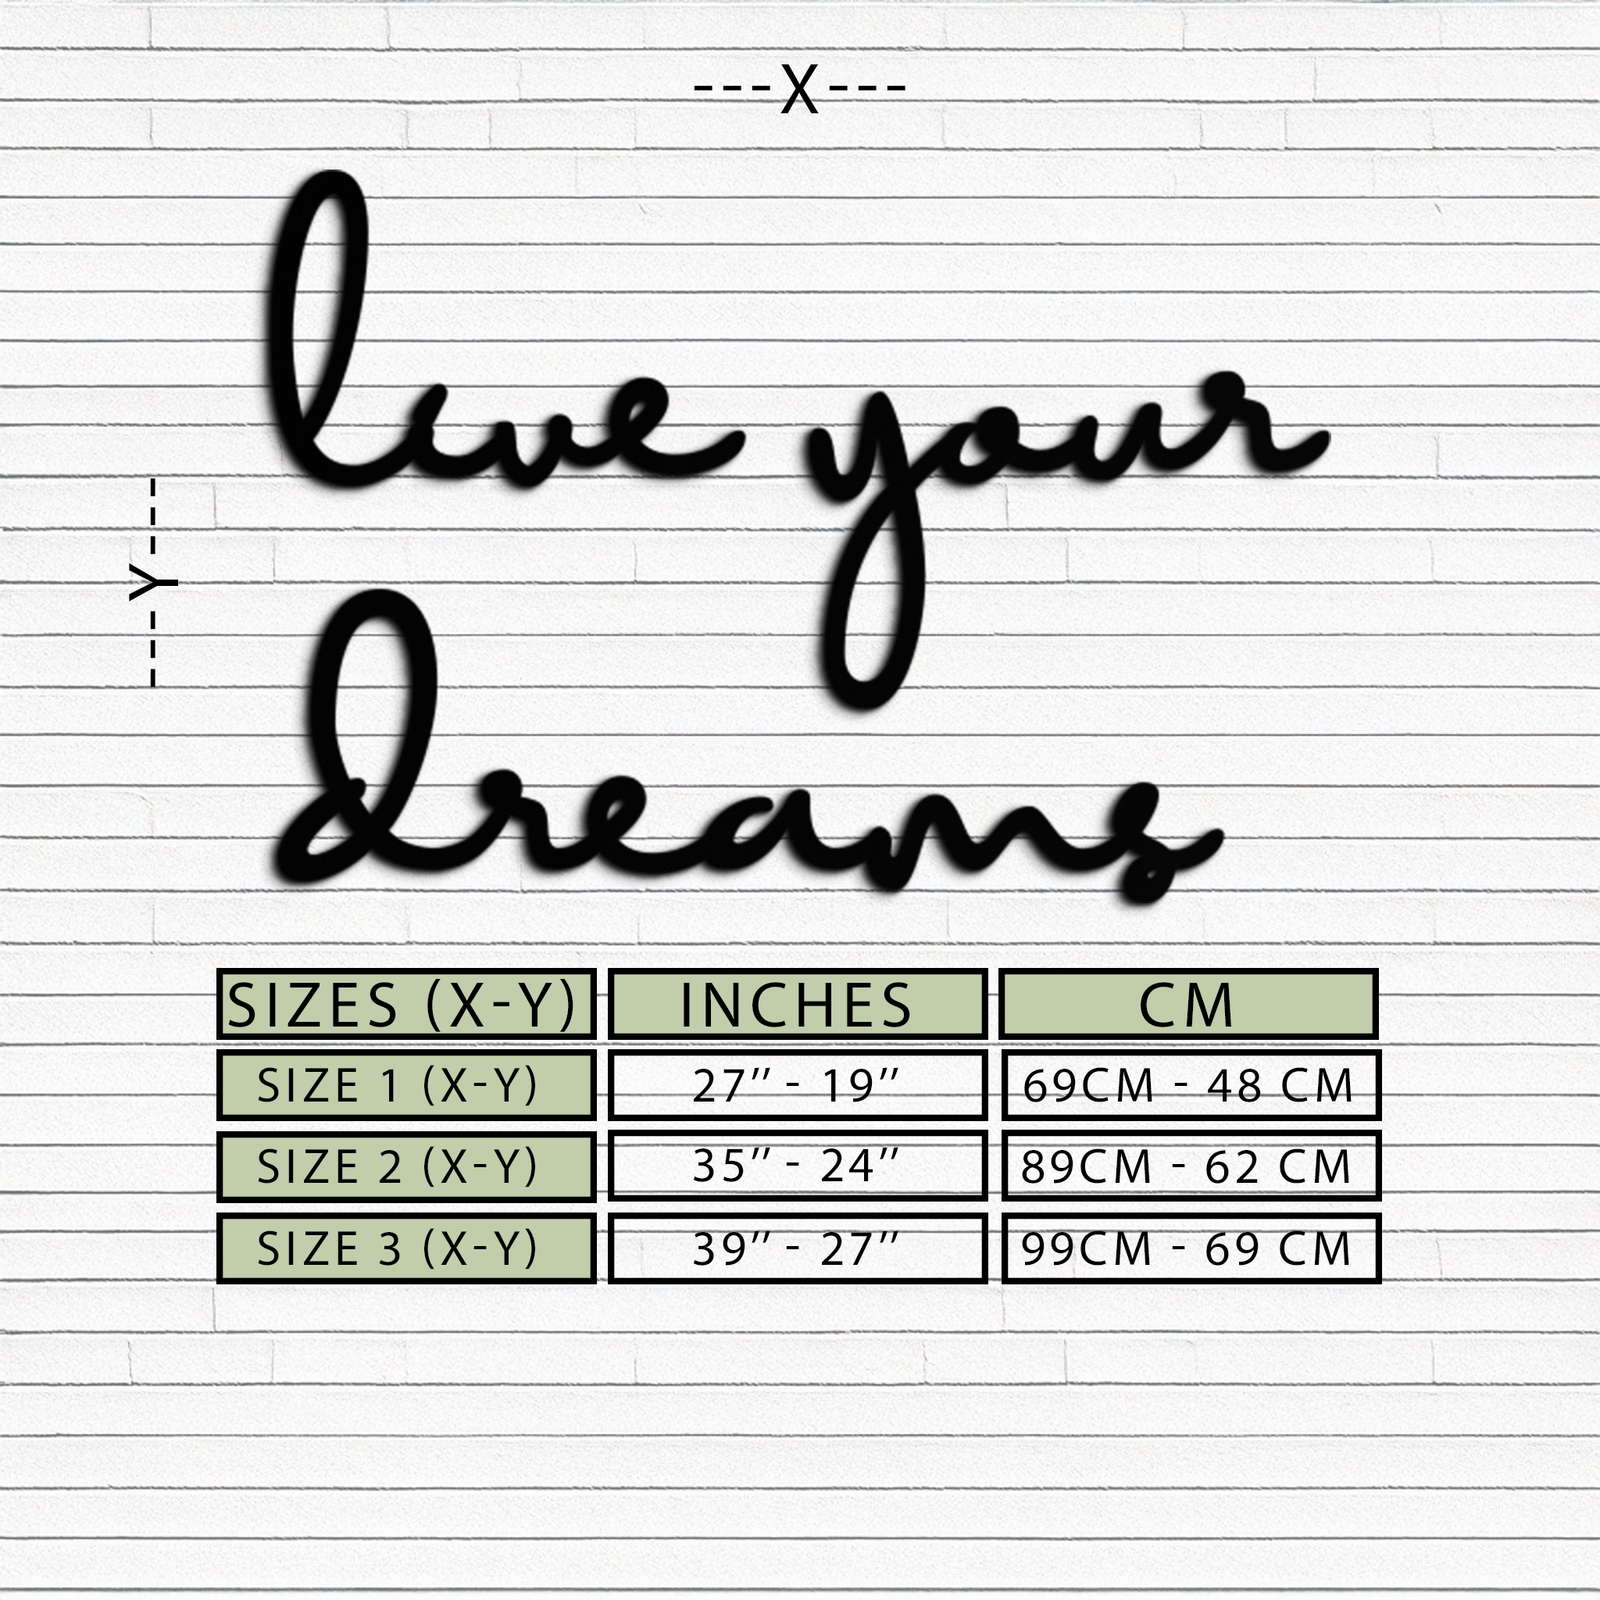 ---X---
live your
---Y---
dreams
SIZES (X-Y) INCHES CM
SIZE 1 (X-Y) 27'' - 19'' 69CM - 48 CM
SIZE 2 (X-Y) 35'' - 24'' 89CM - 62 CM
SIZE 3 (X-Y) 39'' - 27'' 99CM - 69 CM